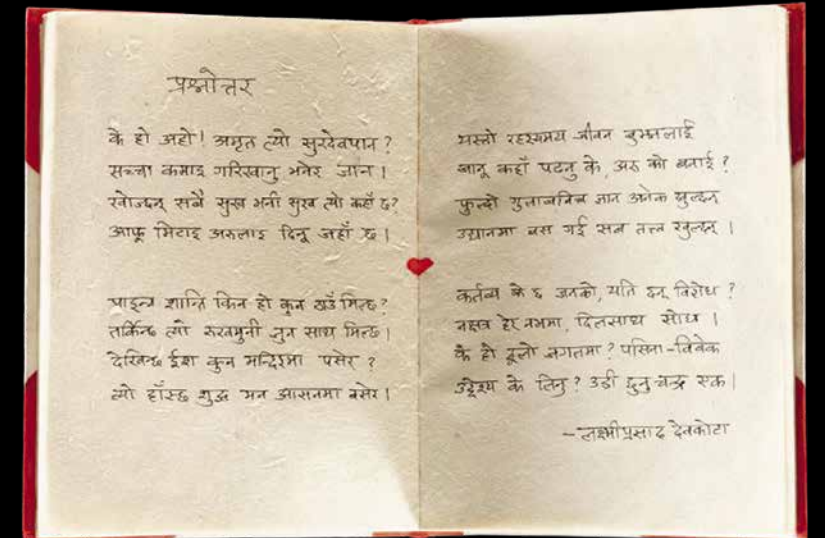 प्रश्नोत्तर
के हो अहो! अमृत त्यो सुरदेवपान ?
सच्चा कमाइ गरिखानु भनेर जान ।
खोज्दछन् सबै सुख भनी सुख त्यो कहाँ छ?
आफू मिटाइ अरुलाइ दिनु जहाँ छ ।
पाइन्न शान्ति किन हो कुन ठाउँ मिल्छ?
तर्किन्छ त्यो रुखमुनी जुन साथ मिल्छ।
देखिन्छ ईश कुन मन्दिरमा पसेर ?
त्यो हाँस्छ शुद्ध मन आसनमा बसेर ।
यस्तो रहस्यमय जीवन बुझ्नलाई
जानू कहाँ पढनु के, अरु को बनाई ?
फुल्दो गुलाबबिच ज्ञान अनेक झुल्दछन्
उद्यानमा बस गई सब तत्व खुल्दछन् ।
कर्तव्य के छ जनको, यति छन् विरोध ?
नक्षत्र हेर नभमा, दिलसाथ सोध ।
के हो ठूलो जगतमा ? पसिना-विवेक
उद्देश्य के लिनु ? उडी छुनु चन्द्र एक ।
-लक्ष्मीप्रसाद देवकोटा